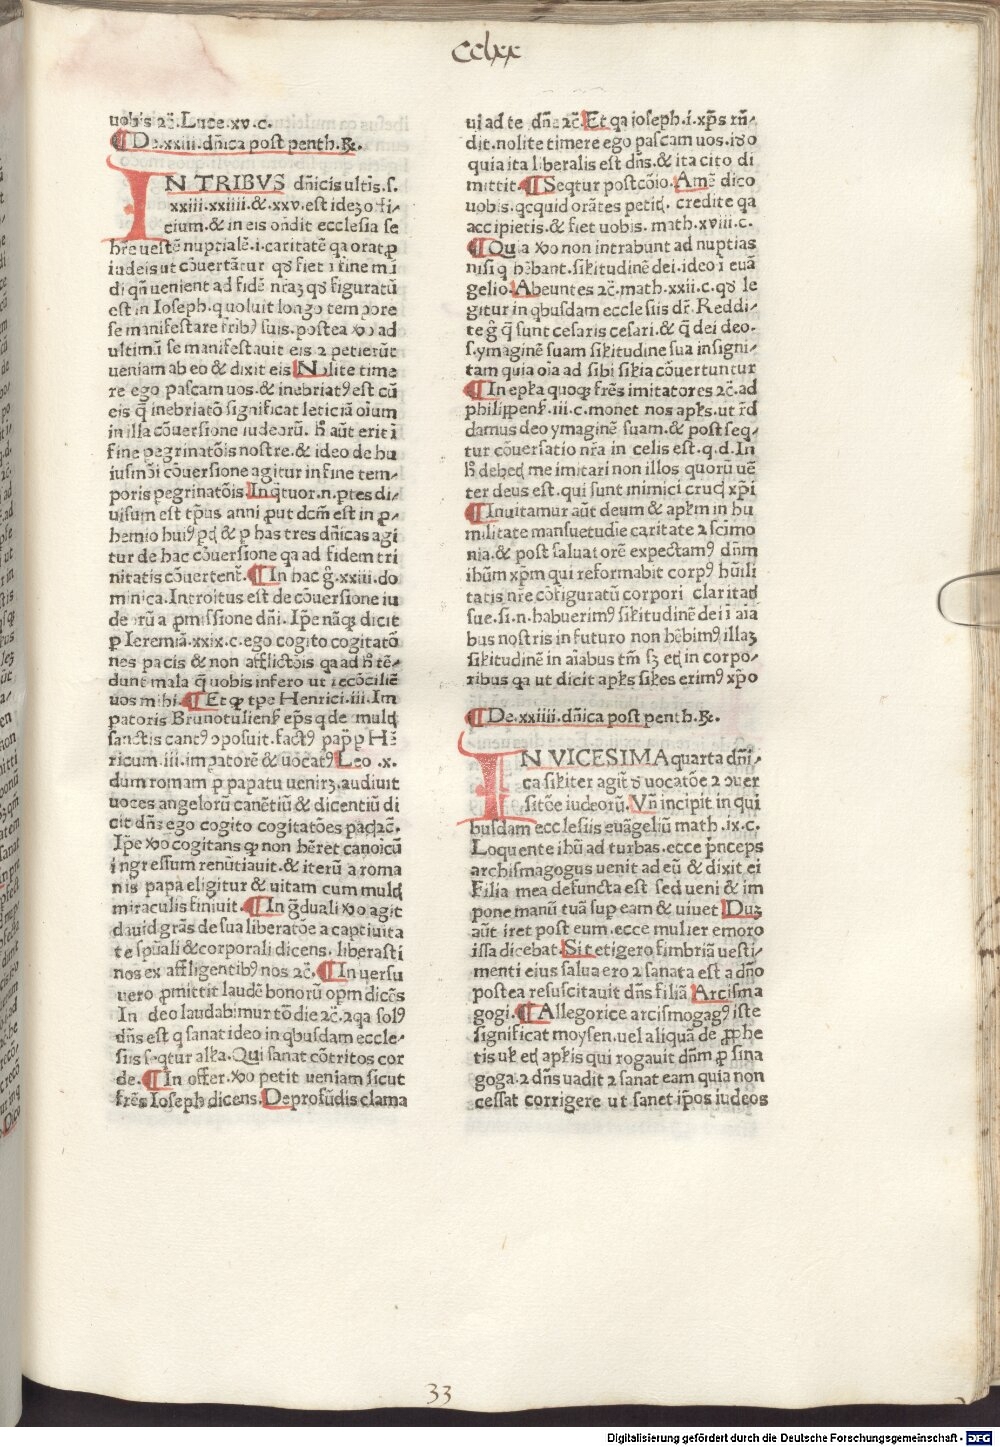 cclxx
uobis ⁊c̄. Luce. xv. c.
¶ De. xxiii. dn̄ica post penth. R̷.
IN TRIBVS dn̄icis ultis̄. s.
xxiii. xxiiii. &. xxv. est ideȝ offi⸗
cium. & in eis on̄dit ecclesia se
hr̄e uestē nuptialē. i. caritatē qa orat ꝓ
iudeis ut cōuertātur qđ fiet ī fine mū
di qn̄ uenient ad fidē nr̄aȝ qđ figuratū
est in Ioseph. q uoluit longo tempore
se manifestare frib9 suis. postea xo ad
ultimū se manifestauit eis ⁊ petierūt
ueniam ab eo & dixit eis Nolite time
re ego pascam uos. & inebriat9 est cū
eis q̄ inebriatō significat leticiā oīum
in illa cōuersione iudeorū. h̄ aūt erit ī
fine pegrinatōis nostre. & ideo de hu
iusmōi cōuersione agitur in fine tem⸗
poris pegrinatōis In qtuor. n. ptes di⸗
uisum est tp̄us anni ꝓut dcm̄ est in ꝓ⸗
hemio hui9 & p has tres dn̄icas agi
tur de hac cōuersione qa ad fidem tri
nitatis cōuertent̄. ¶ In hac g̊. xxiii. do
minica. Introitus est de cōuersione iu
deorū a ꝓmissione dn̄i. Ip̄e nāqȝ dicit
ꝑ Ieremiā. xxix. c. ego cogito cogitatō
nes pacis & non afflictōis qa ad h̄ tē⸗
dunt mala q̄ uobis infero ut recōciliē
uos mihi. ¶ Et ꝙ tpe Henrici. iii. Im
patoris Bruno tulienß ep̄s q de multꝭ
sanctis cant9 ꝯposuit. fact9 pap̄ p Hē
ricum. iii. impatorē & uocat9 Leo. x.
dum romam ꝑ papatu uenirȝ. audiuit
uoces angelorū canētiū & dicentiū di
cit dn̄s ego cogito cogitatōes pacꝭ ⁊c̄.
Ip̄e xo cogitans ꝙ non hēret canoicū
īngressum renūtiauit. & iterū a roma
nis papa eligitur & uitam cum multꝭ
miraculis finiuit. ¶ In gđuali xo agit
dauid grās de sua liberatōe a captiuita
te spūali & corporali dicens. liberasti
nos ex affligentib9 nos ⁊c̄. ¶ In uersu
uero ꝓmittit laudē bonorū opm dicēs
In deo laudabimur tō die ⁊c̄. ⁊ qa sol9
dn̄s est q sanat ideo in qbusdam eccle⸗
siis seqtur alƚa. Qui sanat cōtritos cor
de. ¶ In offer. xo petit ueniam sicut
frēs Ioseph dicens. De profūdis clama
ui ad te dn̄e ⁊c̄ Et qa ioseph. i. xp̄s rn̄⸗
dit. nolite timere ego pascam uos. iđo
quia ita liberalis est dn̄s. & ita cito di
mittit. ¶ Seqtur postcōio. Amē dico
uobis. qcquid orātes petitꝭ. credite qa
accipietis. & fiet uobis. math. xviii. c.
¶ Quia xo non intrabunt ad nuptias
nisi q hēbant. sikitudinē dei. ideo ī euā
gelio. Abeuntes ⁊c̄. math. xxii. c. qđ le
gitur in qbusdam ecclesiis dr̄. Reddi⸗
te g̊ q̄ sunt cesaris cesari. & q̄ dei deo.
s. ymaginē suam sikitudine sua insigni⸗
tam quia oīa ad sibi sikia cōuertuntur
¶ In epƚa quoqȝ frēs imitatores ⁊c̄. ad
philippenß. iii. c. monet nos apƚs. ut rđ
damus deo ymaginē suam. & post seq⸗
tur cōuersatio nr̄a in celis est. q. d. In
h̄ debetꝭ me imitari non illos quorū uē
ter deus est. qui sunt inimici crucꝭ xp̄i
¶ Inuitamur aūt deum & apƚm in hu
militate mansuetudīe caritate ⁊ scīmo
nia. & post saluatorē expectam9 dn̄m
ihūm xp̄m qui reformabit corp9 hūili
tatis nr̄e cōfiguratū corpori claritatꝭ
sue. si. n. habuerim9 sikitudinē dei ī aīa
bus nostris in futuro non hēbim9 illaȝ
sikitudinē in aīabus tm̄ sȝ etꝭ in corpo⸗
ribus qa ut dicit apƚs sikes erim9 xp̄o
¶ De. xxiiii. dn̄ica post penth. R̷.
IN VICESIMA quarta dn̄i⸗
ca sikiter agit̄ đ uocatōe ⁊ ꝯuer
sitōe iudeorū. Vn̄ incipit in qui
busdam ecclesiis euāgeliū math. ix. c.
Loquente ihū ad turbas. ecce p̄nceps
archismagogus uenit ad eū & dixit ei
Filia mea defuncta est sed ueni & im
pone manū tuā sup eam & uiuet Duȝ
aūt iret post eum. ecce mulier emoro
issa dicebat. Si tetigero fimbriā uesti⸗
menti eius salua ero ⁊ sanata est a dn̄o
postea resuscitauit dn̄s filiā Arcisma
gogi. ¶ Allegorice arcismogag9 iste
significat moysen. uel aliquā de ꝓphe
tis uƚ etꝭ apƚis qui rogauit dn̄m ꝓ sina
goga. ⁊ dn̄s uadit ⁊ sanat eam quia non
cessat corrigere ut sanet ip̄os iudeos
33
Digitalisierung gefördert durch die Deutsche Forschungsgemeinschaft - DFG